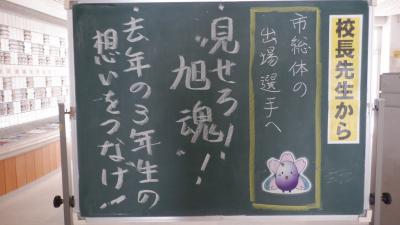 校長先生から
市総体の
出場選手へ
見せろ!!
旭魂!!
去年の3年生の
想いをつなげ!!